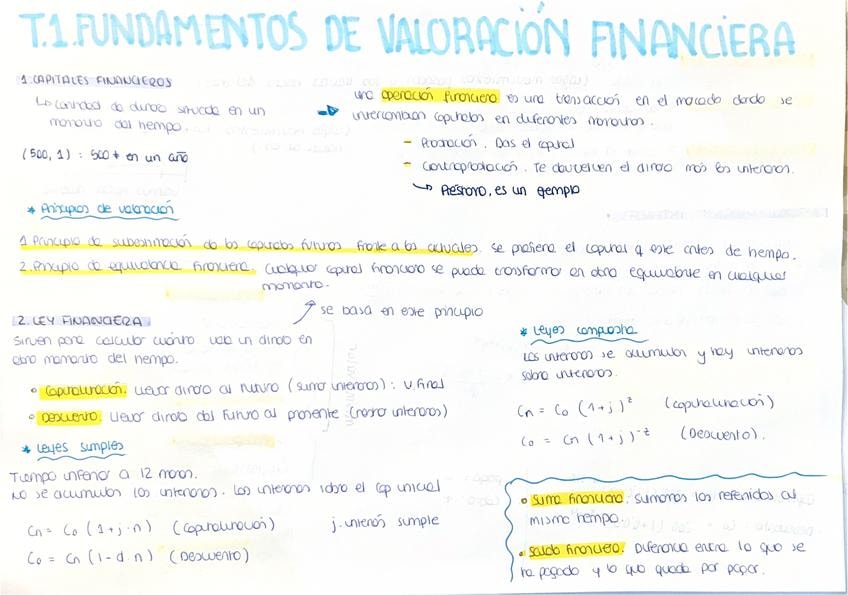 T.1. FUNDAMENTOS DE VALORACIÓN FINANCIERA
1. CAPITALES FINANCIEROS
↳ cantidad de dinero situada en un
momento del tiempo.
(500, 1) : 500 € en un año
una operación financiera es una transacción en el mercado donde se
intercambian capitales en diferentes momentos.
- Prestación. Das el capital
- Contraprestación. Te devuelven el dinero más los intereses.
↳ Préstamo, es un ejemplo
* Principios de valoración
1. Principio de subestimación de los capitales futuros frente a los actuales. se prefiere el capital q esté antes de tiempo.
2. Principio de equivalencia financiera. Cualquier capital financiero se puede transformar en otro equivalente en cualquier
momento.
se basa en este principio
2. LEY FINANCIERA
Sirven para calcular cuánto vale un dinero en
otro momento del tiempo.
• Capitalización. Llevar dinero al futuro (suma intereses) : V. final
• Descuento. Llevar dinero del futuro al presente (restar intereses)
* Leyes simples
Tiempo inferior a 12 meses.
No se acumulan los intereses. Los intereses sobre el cap inicial
Cn = Co (1 + j · n) (Capitalización) j. interés simple
Co = Cn (1 - d · n) (Descuento)
* Leyes compuesta
Los intereses se acumulan y hay intereses
sobre intereses.
Cn = Co (1+j)^z (capitalización)
Co = Cn (1+j)^-z (Descuento).
• Suma financiera. Sumamos los referidos al
mismo tiempo.
• Saldo financiero. Diferencia entre lo que se
ha pagado y lo que queda por pagar.